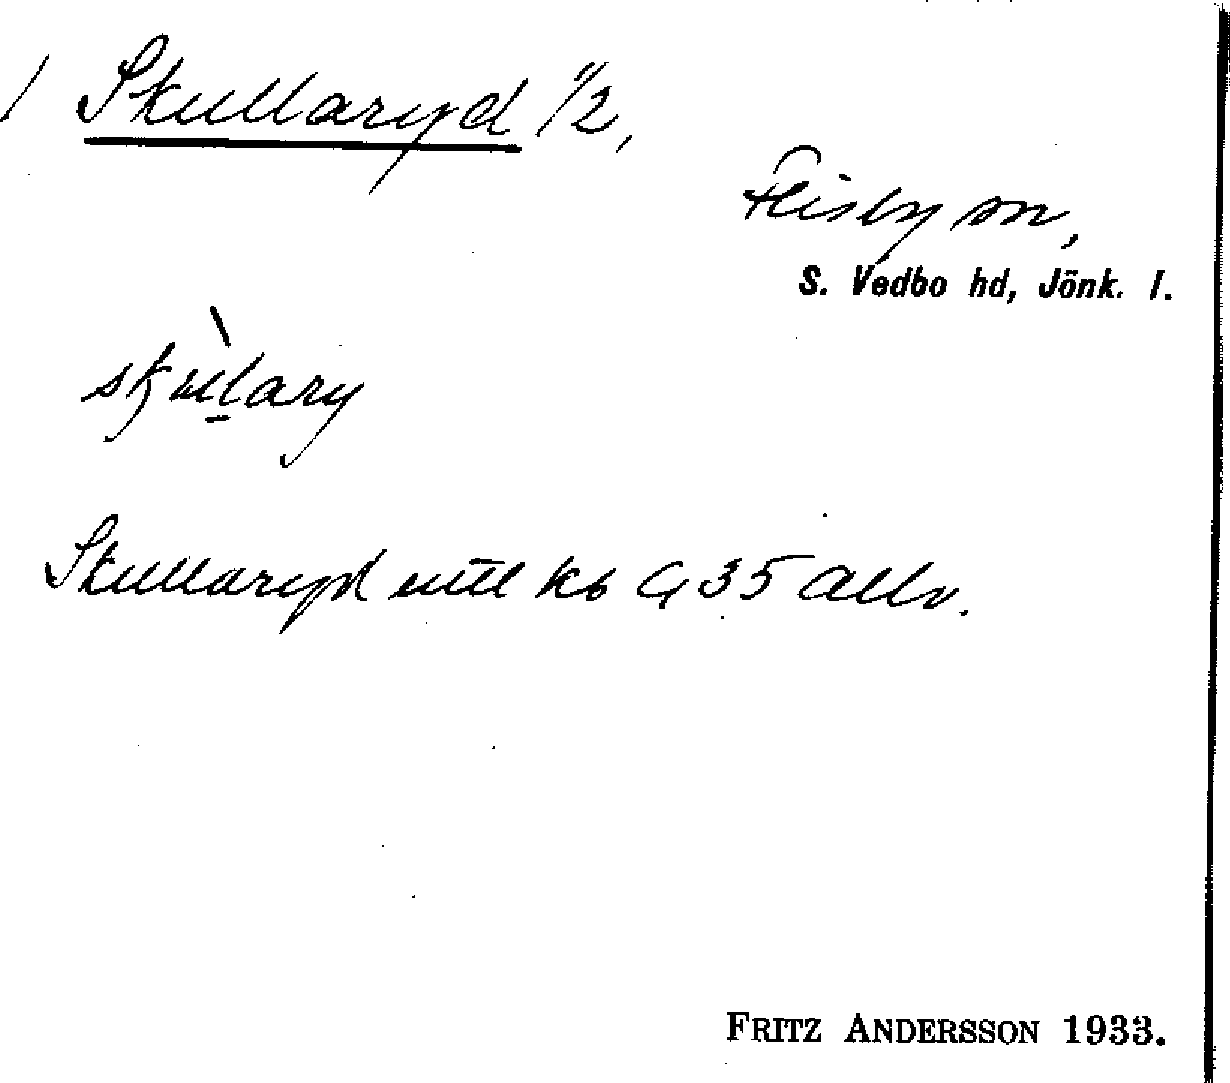 / Skullaryd 1/2,
Flisby sn,
S. Vedbo hd, Jönk. l.
skùlary
Skullaryd kb 35
FRITZ ANDERSSON 1933.